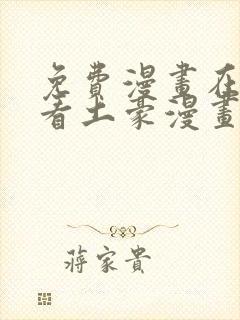 免費漫畫在
看土豪漫畫
蔣家貴